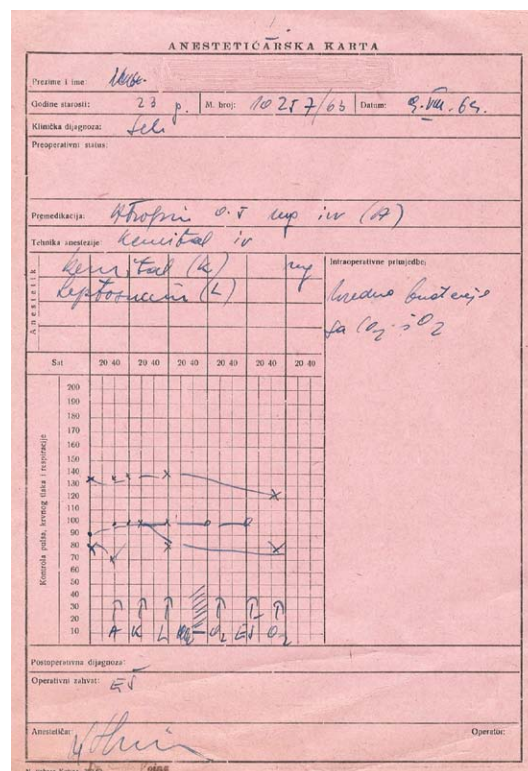 ANESTETIČARSKA KARTA
Prezime i ime:
Godine starosti: 23 M. broj: 10257/63 Datum: 9. VIII. 63.
Klinička dijagnoza:
Preoperativni status:
Premedikacija: Atropin 0.5 mg iv (A)
Tehnika anestezije: Kemital iv
Anestetik
Kemital (K) mg
Leptosuccin (L)
Intraoperativne primjedbe:
Uredno buđenje
sa CO2 i O2
Sat 20 40 20 40 20 40 20 40 20 40
Kontrola pulsa, krvnog tlaka i respiracije
200
190
180
170
160
150
140
130
120
110
100
90
80
70
60
50
40
30
20
10
A K L O2 EŠ O2
Postoperativna dijagnoza:
Operativni zahvat: EŠ
Anestetičar:
Operatör: